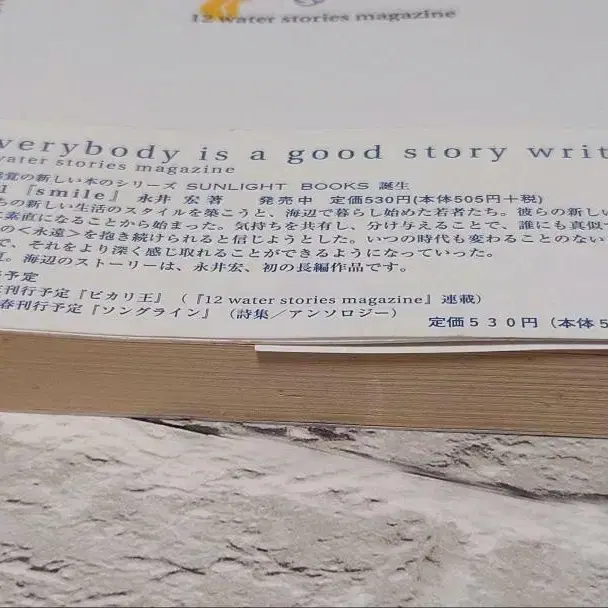 12 water stories magazine
verybody is a good story writ
water stories magazine
覚の新しい本のシリーズ SUNLIGHT BOOKS 誕生
1 『smile』 永井 宏 著 発売中 定価530円(本体505円+税)
ちの新しい生活のスタイルを築こうと、海辺で暮らし始めた若者たち。彼らの新しい
に素直になることから始まった。気持ちを共有し、分け与えることで、誰にも真似で
の<永遠>を抱き続けられると信じようとした。いつの時代も変わることのない
で、それをより深く感じ取れることができるようになっていった。
海辺のストーリーは、永井宏、初の長編作品です。
予定
刊行予定『ピカリ王』(『12 water stories magazine』連載)
春刊行予定『ソングライン』(詩集/アンソロジー)
定価530円(本体5